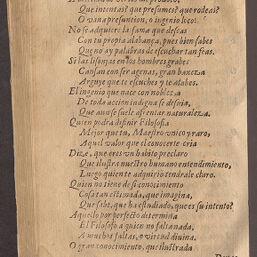 Que intentas? que presumes? que rodeas?
O vana presuncion, o ingenio loco.
No se adquiere la fama que desseas
Con tu propia alabança, pues bien sabes
Que no ay palabras de escuchar tan feas.
Si las lisonjas en los hombres grabes
Cansan con ser agenas, gran baxeza
Arguye que te escuches y te alabes.
El ingenio que nace con nobleza
De toda accion indigna se desvia,
Que aun se suele afrentar naturaleza.
Quien podra difinir Filosofia
Mejor que tu, Maestro vnico y raro,
Aquel valor que el conocerte cria
Dize, que eres vn habito preclaro
Que ilustra nuestro humano entendimiento,
Luego quien te adquirio tendrale claro.
Quien no tiene de si conocimiento
Cosa tan estimada, que imagina,
Que sabe, que ha estudiado, que es su intento?
Aquello por perfecto determina
El Filosofo a quien no falta nada,
A muchos faltas, o virtud divina.
O gran conocimiento, que ilustrada